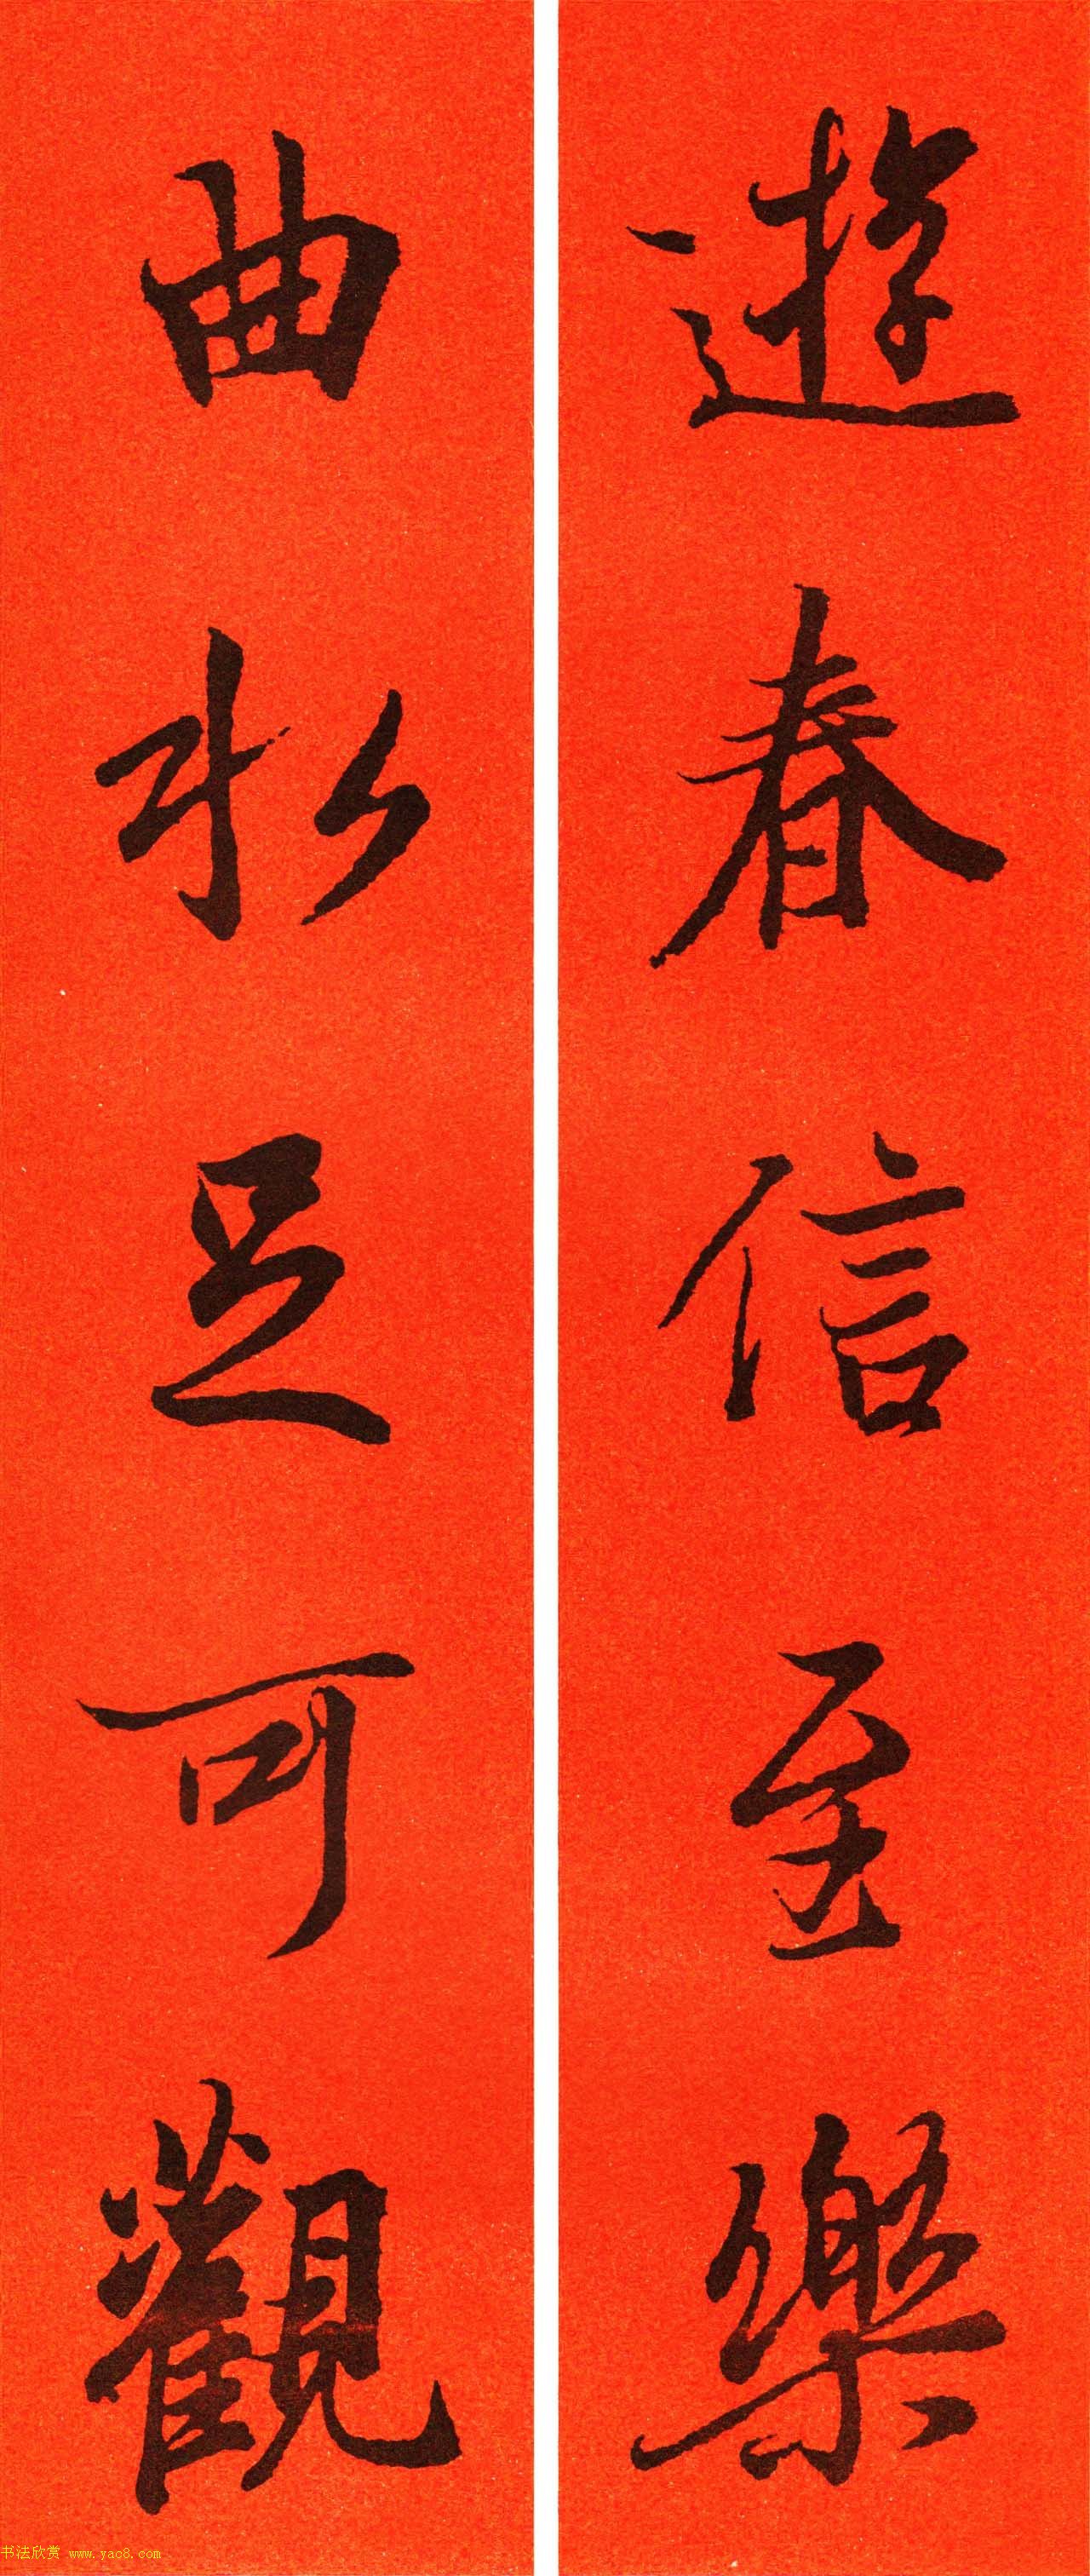 遊春信至樂
曲水足可觀
书法欣赏 www.yac8.com